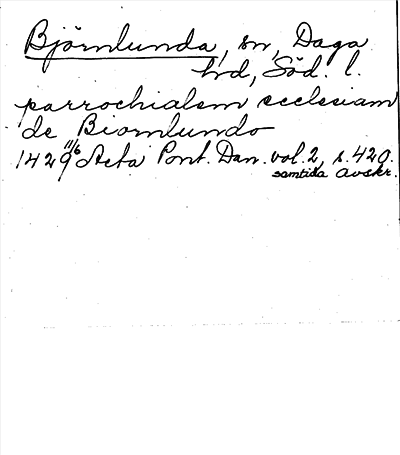 Björnlunda, sn, Daga
hd, Söd. l.
parrochialem ecclesiam
de Biornlundo
1429 11/6 Acta Pont. Dan. vol. 2, s. 420.
samtida Avskr.